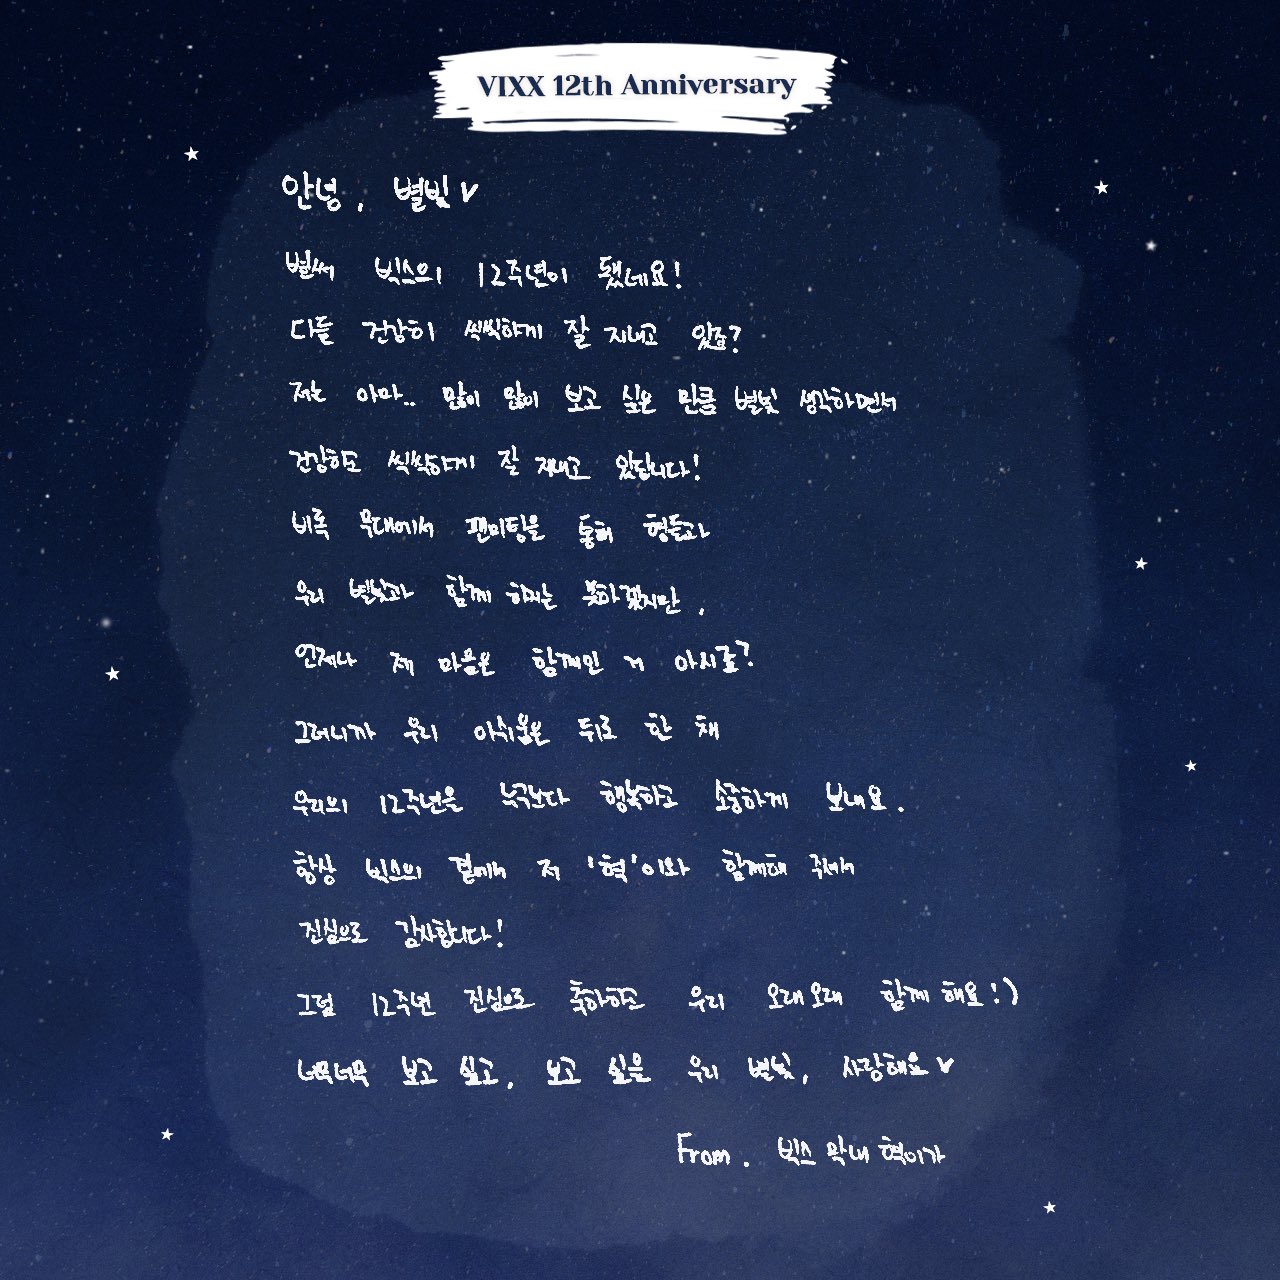 VIXX 12th Anniversary
안녕, 별빛♥
벌써 빅스의 12주년이 됐네요!
다들 건강히 씩씩하게 잘 지내고 있죠?
저는 아마.. 많이 많이 보고 싶은 만큼 별빛 생각하면서
건강하고 씩씩하게 잘 지내고 있답니다!
비록 무대에서 팬미팅을 통해 형들과
우리 별빛과 함께 하지는 못하겠지만,
언제나 제 마음은 함께인 거 아시죠?
그러니까 우리 아쉬움은 뒤로 한 채
우리의 12주년을 누구보다 행복하고 소중하게 보내요.
항상 빅스의 곁에서 저 '혁'이와 함께해 주셔서
진심으로 감사합니다!
그럼 12주년 진심으로 축하하고 우리 오래오래 함께 해요!:)
너무너무 보고 싶고, 보고 싶은 우리 별빛, 사랑해요♥
From. 빅스 막내 혁이가